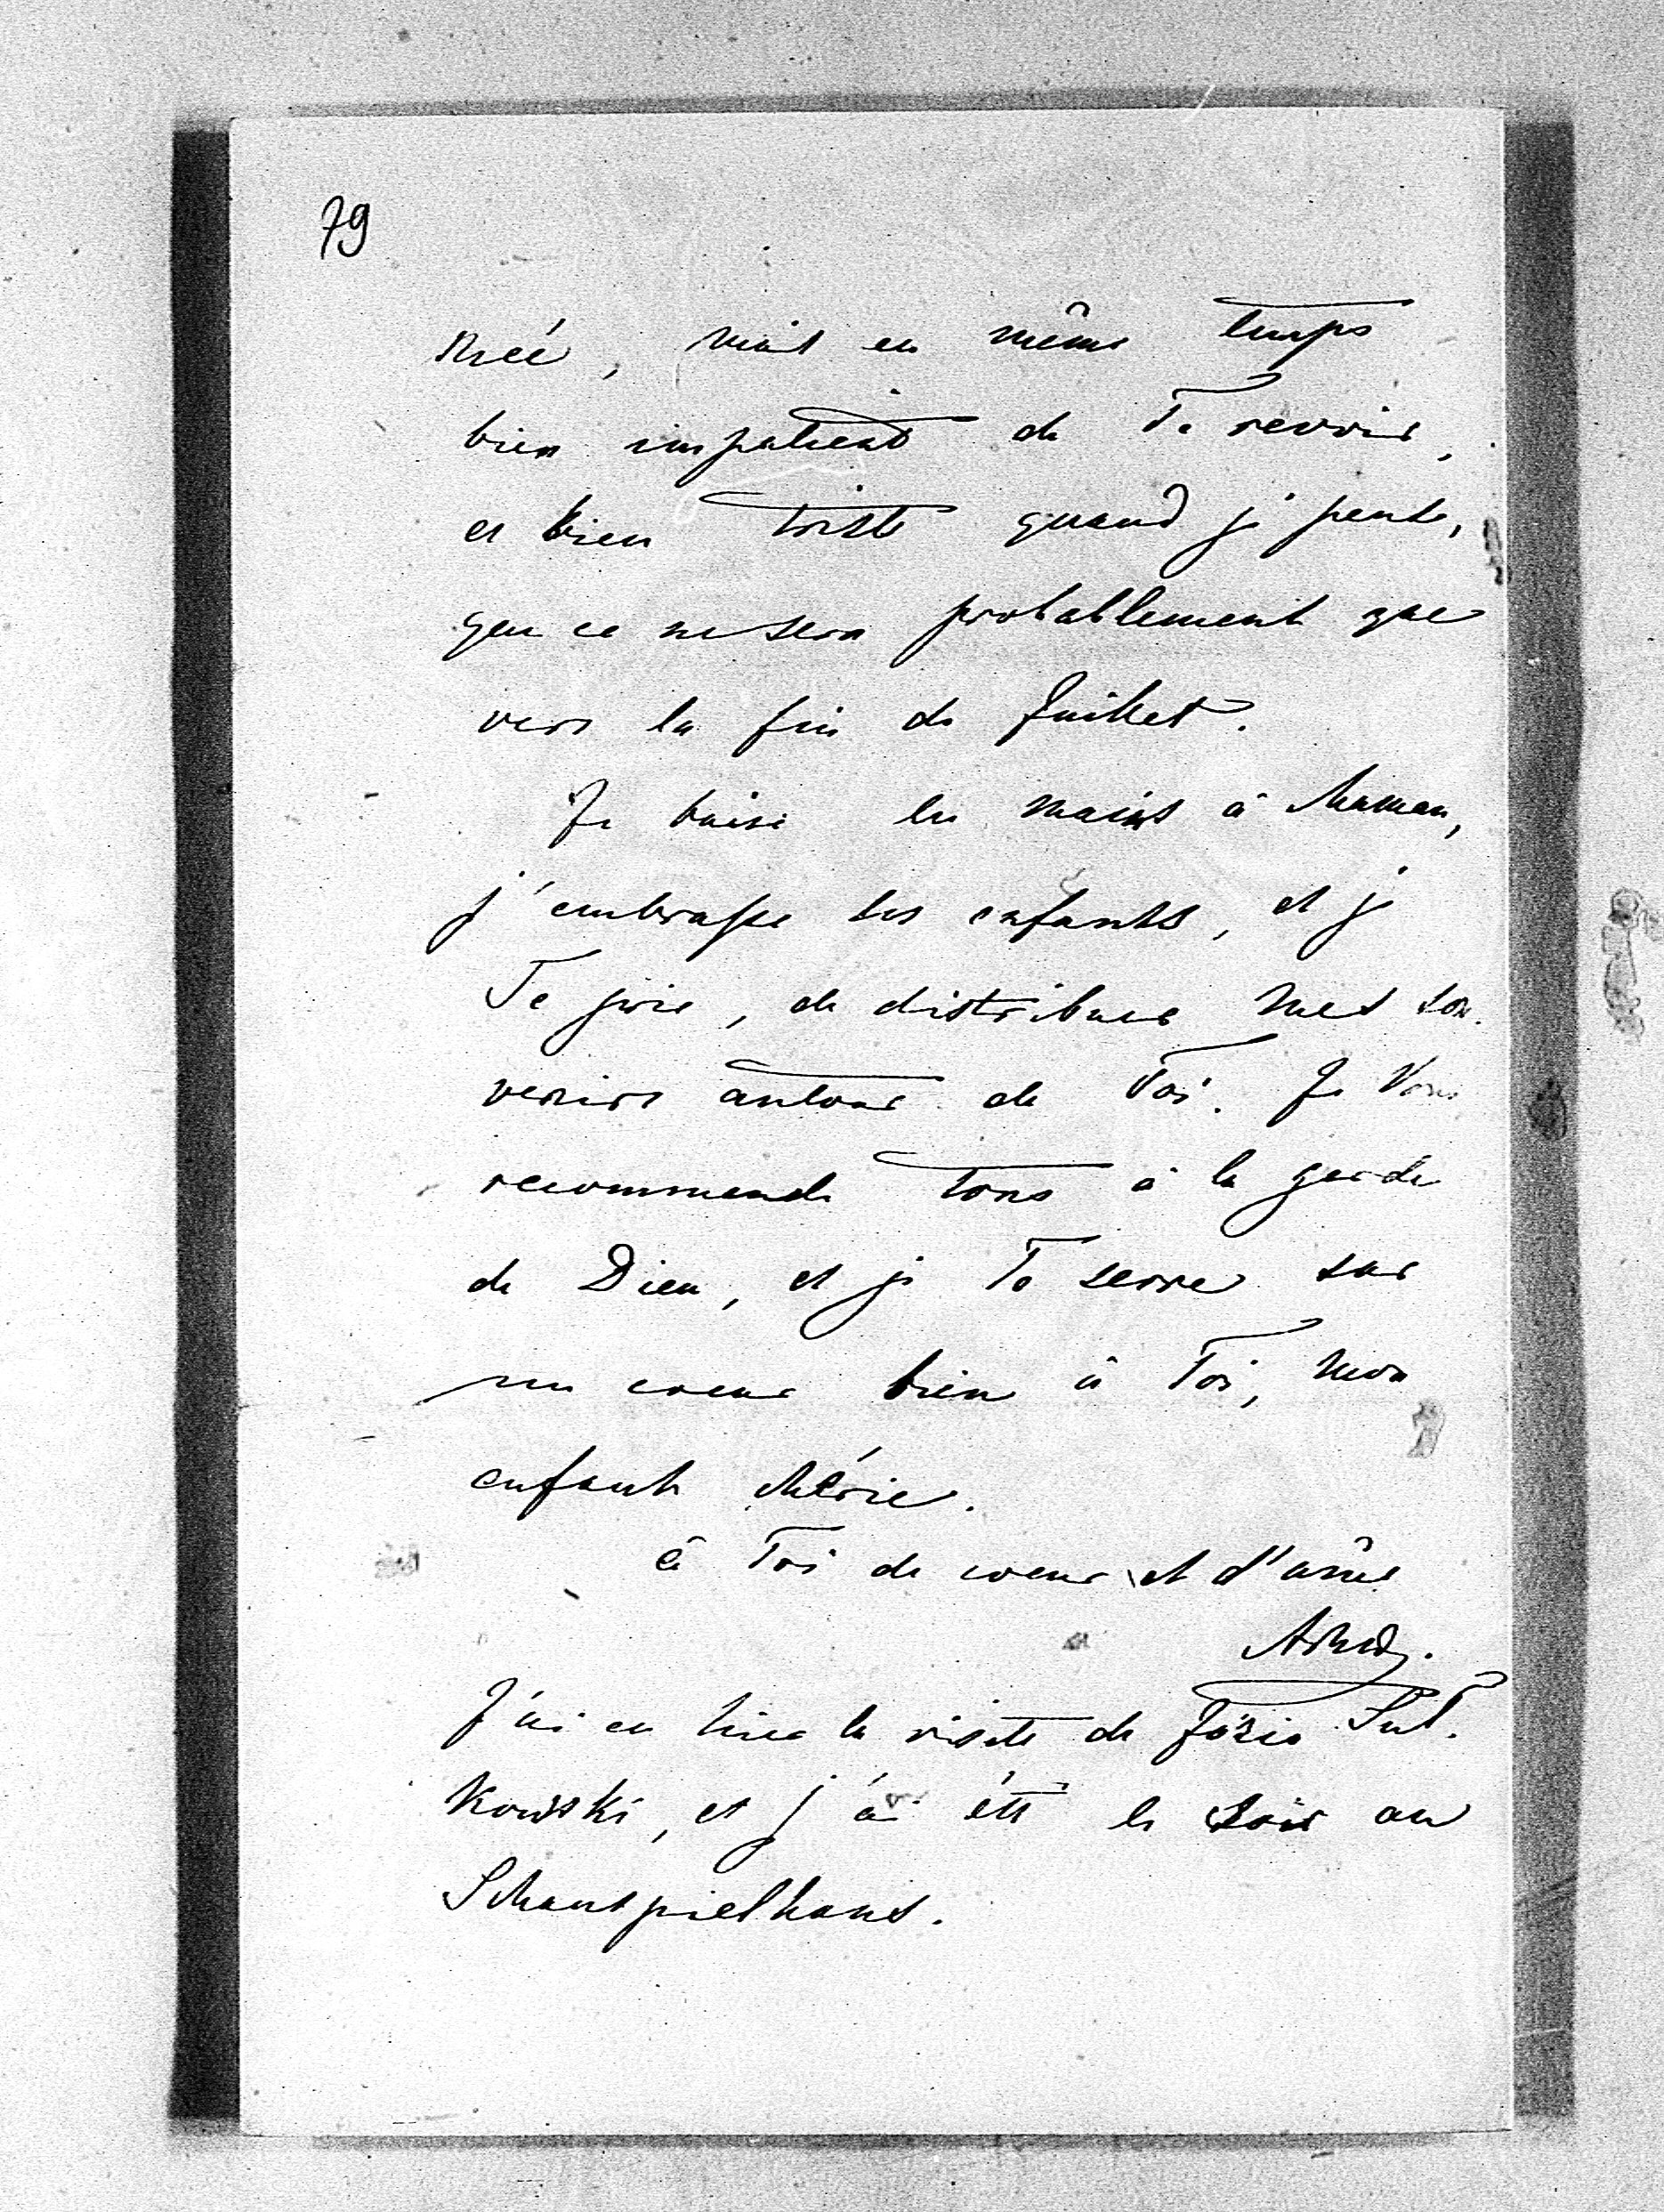 79
née, mais en même temps
bien impatient de Te revoir,
et bien triste quand je pense,
que ce ne sera probablement que
vers la fin de Juillet.
Je baise les mains à Maman,
j'embrasse les enfants, et je
Te prie, de distribuer mes sou-
venirs autour de Toi. Je Vous
recommande tous à la garde
de Dieu, et je Te serre sur
un coeur bien à Toi, mon
enfant chérie.
à Toi de coeur et d'âme
J'ai eu hier la visite de Józio
kowski, et j'ai été le soir au
Schauspielhaus.